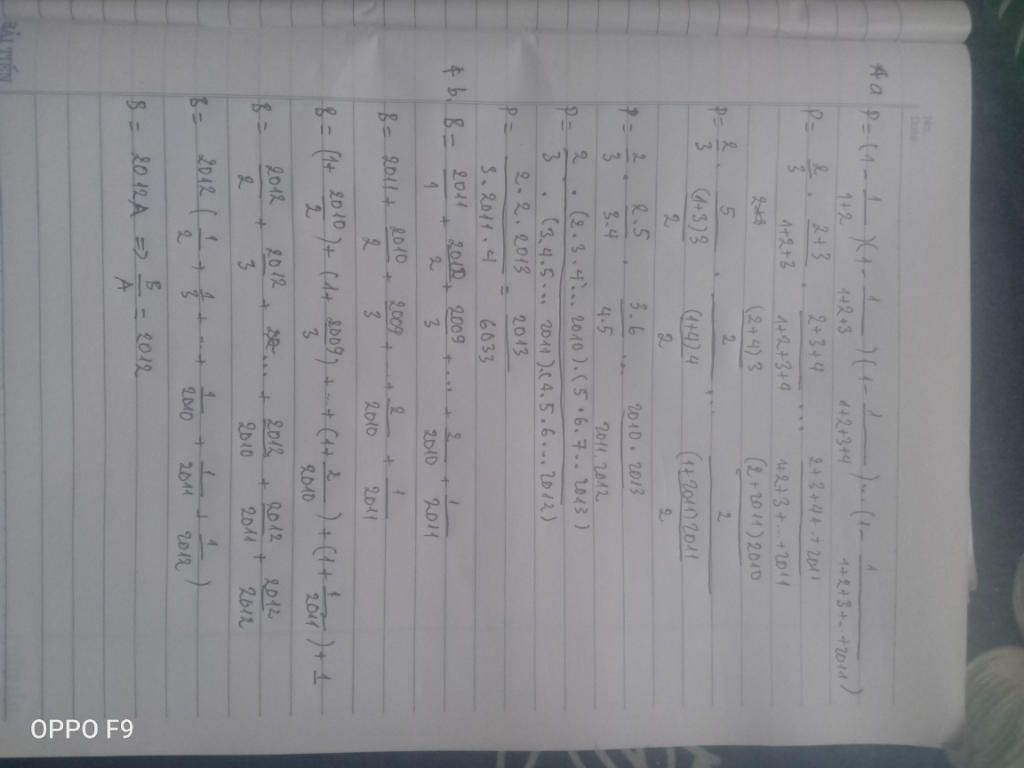 Aa P = (1 - 1/(1+2))(1 - 1/(1+2+3))(1 - 1/(1+2+3+4))...(1 - 1/(1+2+3+...+2011))
P = 2/3 . (2+3)/(1+2+3) . (2+3+4)/(1+2+3+4) ... (2+3+4+..+2011)/(1+2+3+...+2011)
P = 2/3 . 5/((1+3)3/2) . ((2+4)3/2)/((1+4)4/2) ... ((2+2011)2010/2)/((1+2011)2011/2)
P = 2/3 . 2.5/3.4 . 3.6/4.5 ... 2010.2013/2011.2012
P = 2/3 . (2.3.4... 2010).(5.6.7..2013)/(3.4.5... 2011)(4.5.6...2012)
P = 2.2.2013/3.2011.4 = 2013/6033
b. B = 2011/1 + 2010/2 + 2009/3 + ... + 2/2010 + 1/2011
B = 2011 + 2010/2 + 2009/3 + ... + 2/2010 + 1/2011
B = (1+ 2010/2) + (1+ 2009/3) + ... + (1+ 2/2010) + (1+ 1/2011) + 1
B = 2012/2 + 2012/3 + ... + 2012/2010 + 2012/2011 + 2012/2012
B = 2012 (1/2 + 1/3 + ... + 1/2010 + 1/2011 + 1/2012)
B = 2012A => B/A = 2012
OPPO F9